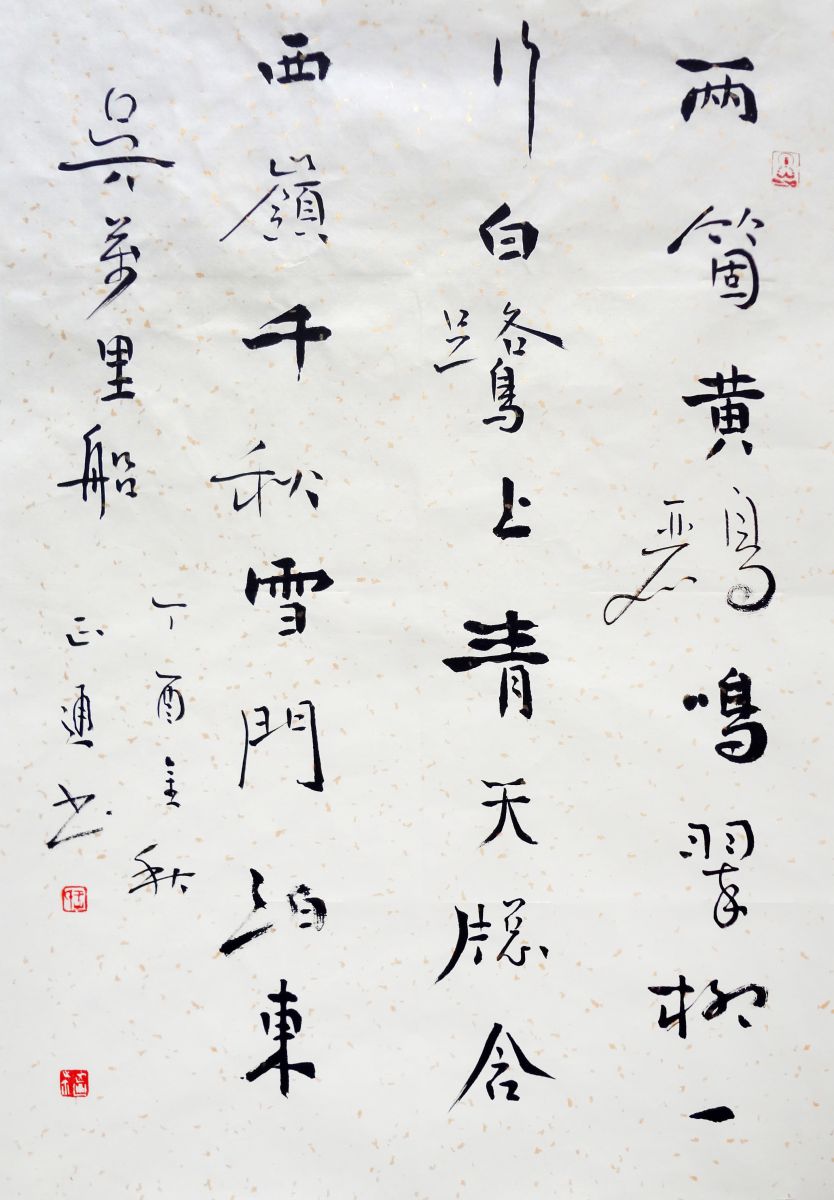 两箇黄鸝鳴翠柳一
行白鷺上青天牕含
西嶺千秋雪門泊東
吳萬里船
丁酉金秋
正通书